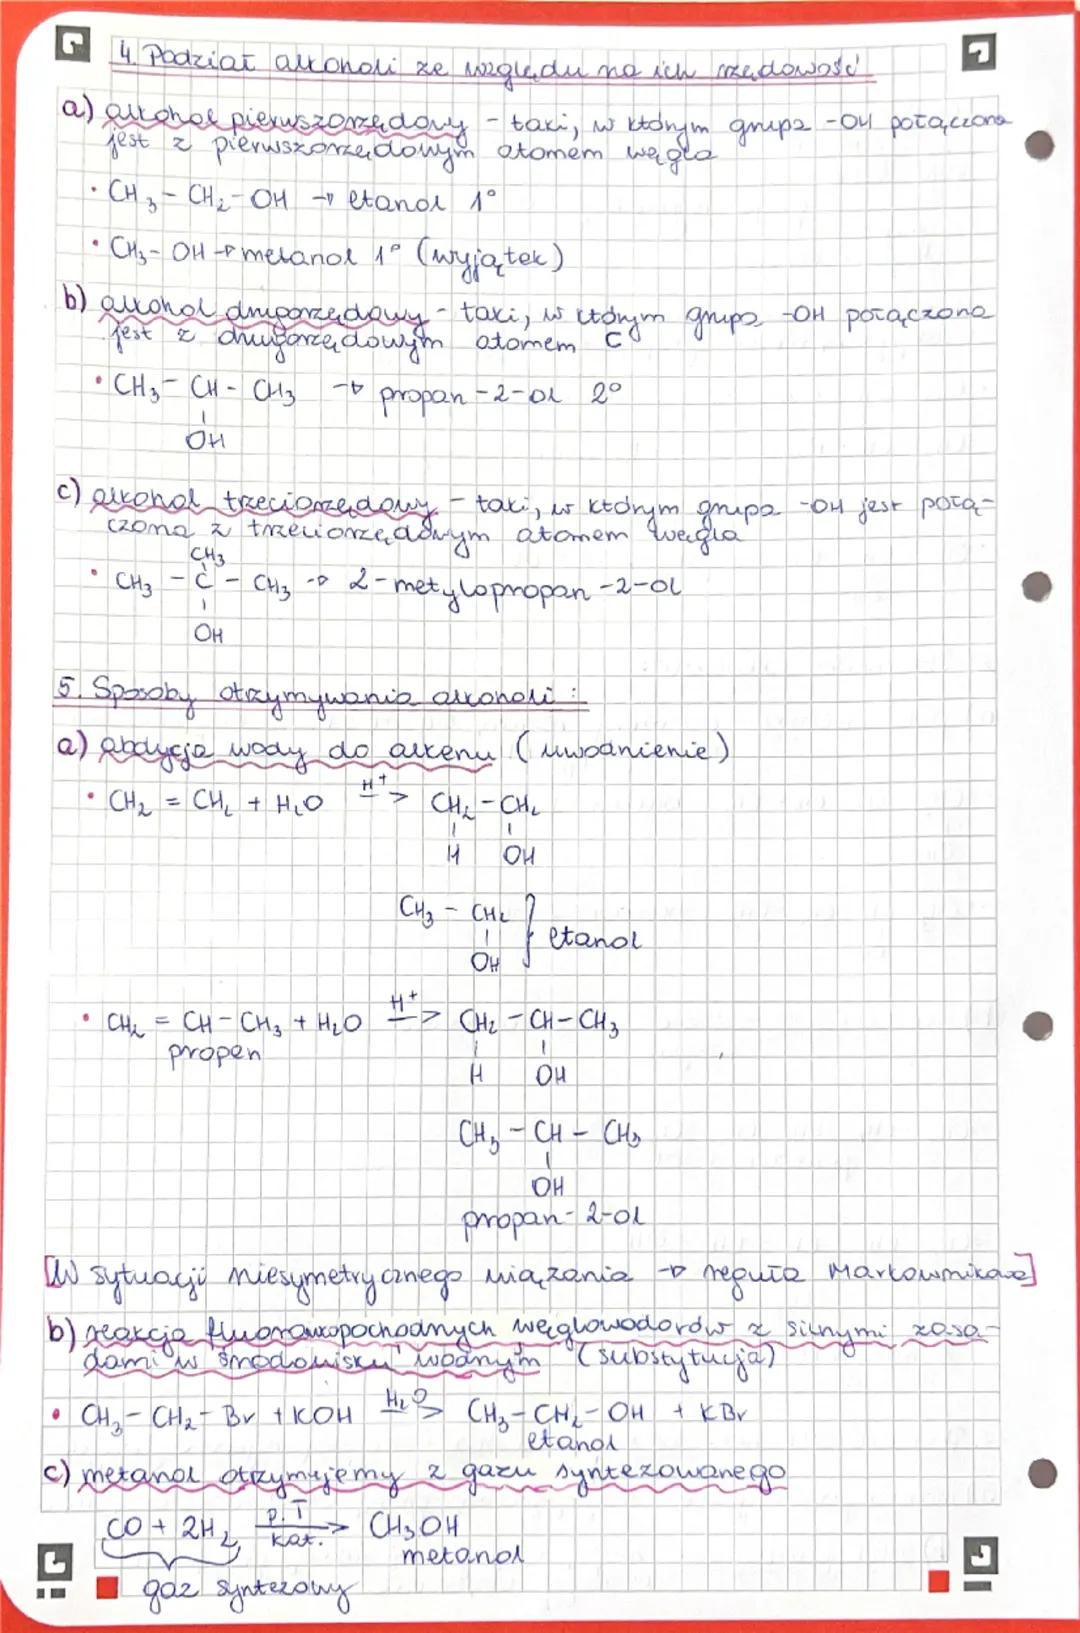 4. Podział alkoholi ze względu na ich rzędowość
a) alkohol pierwszorzędowy - taki, w którym grupa -OH połączona
jest z pierwszorzędowym atomem węgla
• CH3 - CH2 - OH → etanol 1°
• CH3 - OH → metanol 1° (wyjątek)
b) alkohol drugorzędowy - taki, w którym grupa -OH połączona
jest z drugorzędowym atomem C
• CH3 - CH - CH3 → propan-2-ol 2°
OH
c) alkohol trzeciorzędowy - taki, w którym grupa -OH jest połą-
czona z trzeciorzędowym atomem węgla
CH3
• CH3 - C - CH3 → 2-metylopropan-2-ol
OH
5. Sposoby otrzymywania alkoholi:
a) abdycja wody do alkenu (uwodnienie)
• CH2 = CH2 + H2O H+ → CH2 - CH2
H OH
CH3 - CH2
OH } etanol
• CH2 = CH - CH3 + H2O H+ → CH2 - CH - CH3
propen
H OH
CH3 - CH - CH3
OH
propan-2-ol
[W sytuacji niesymetrycznego wiązania → reguła Markownikowa]
b) reakcja fluorowcopochodnych węglowodorów z silnymi zasa-
dami w środowisku wodnym (substytucja)
• CH3 - CH2 - Br + KOH H2O → CH3 - CH2 - OH + KBr
etanol
c) metanol otrzymujemy z gazu syntezowanego
CO + 2H2 p.T kat. → CH3OH
metanol
gaz syntezowy